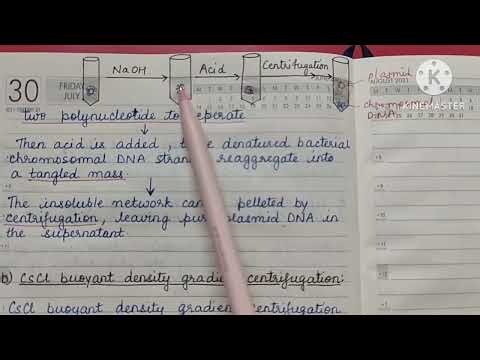 NaOH Acid Centrifugation
plasmid
chromosomal
DNA
K
KINEMASTER
30
FRIDAY
JULY
AUGUST 2021
two polynucleotide to seperate
Then acid is added, the denatured bacterial
chromosomal DNA strands reaggregate into
a tangled mass.
The insoluble network can pelleted by
centrifugation, leaving pure plasmid DNA in
the supernatant.
b) CsCl buoyant density gradient centrifugation:
CsCl buoyant density gradient centrifugation